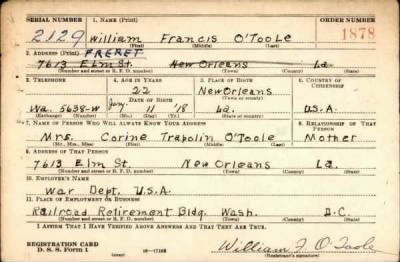 SERIAL NUMBER 1. NAME (Print) ORDER NUMBER
2129 William Francis O'Toole 1878
(First) (Middle) (Last)
2. ADDRESS (Print) FRERET
7613 Elm St. New Orleans La.
(Number and street or R. F. D. number) (Town) (County) (State)
3. TELEPHONE 4. AGE IN YEARS 5. PLACE OF BIRTH 6. COUNTRY OF CITIZENSHIP
22 New Orleans
DATE OF BIRTH (Town or county)
Wa. 5638-W Jany. 11 '18 La. U.S.A.
(Exchange) (Number) (Mo.) (Day) (Yr.) (State or country)
7. NAME OF PERSON WHO WILL ALWAYS KNOW YOUR ADDRESS 8. RELATIONSHIP OF THAT PERSON
Mrs. Corine Trapolin O'Toole Mother
(Mr., Mrs., Miss) (First) (Middle) (Last)
9. ADDRESS OF THAT PERSON
7613 Elm St. New Orleans La.
(Number and street or R. F. D. number) (Town) (County) (State)
10. EMPLOYER'S NAME
War Dept. U.S.A.
11. PLACE OF EMPLOYMENT OR BUSINESS
Railroad Retirement Bldg. Wash. D.C.
(Number and street or R. F. D. number) (Town) (County) (State)
I AFFIRM THAT I HAVE VERIFIED ABOVE ANSWERS AND THAT THEY ARE TRUE.
REGISTRATION CARD
D. S. S. Form 1 (over) 16—17105 William F. O'Toole
(Registrant's signature)